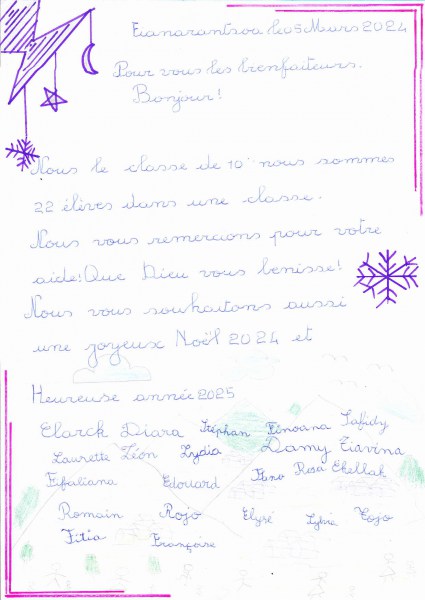 Fianarantsoa le 05 Mars 2024
Pour vous les bienfaiteurs.
Bonjour!
Nous le classe de 10è nous sommes
22 élèves dans une classe.
Nous vous remercions pour votre
aide! Que Dieu vous benisse!
Nous vous souhaitons aussi
une joyeux Noël 2024 et
Heureuse année 2025
Clarck Diara Stéphan Finoana
Laurette Léon Lydia Damy Tiavina
Fifaliana Edouard Rosa
Romain Rojo Elysé Sylvia Tojo
Fitia Françoise